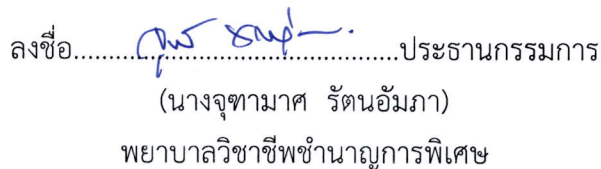 ลงชื่อ..........................................ประธานกรรมการ
(นางจุฑามาศ รัตนอัมภา)
พยาบาลวิชาชีพชำนาญการพิเศษ